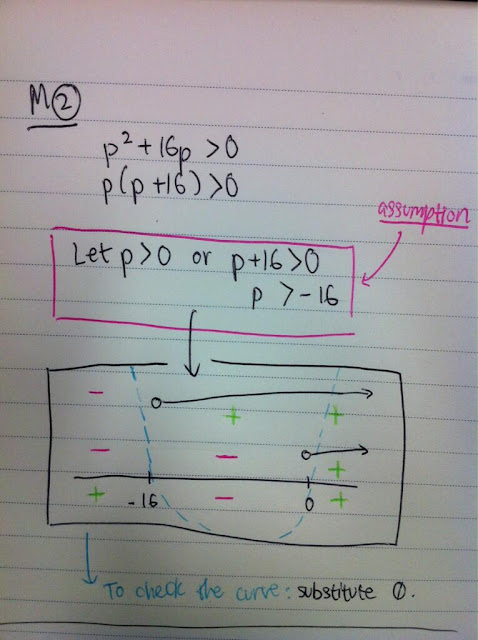 M②
p² + 16p > 0
p(p+16) > 0
assumption
Let p > 0 or p+16 > 0
p > -16
- + +
- - +
+ - +
-16 0
To check the curve: substitute 0.